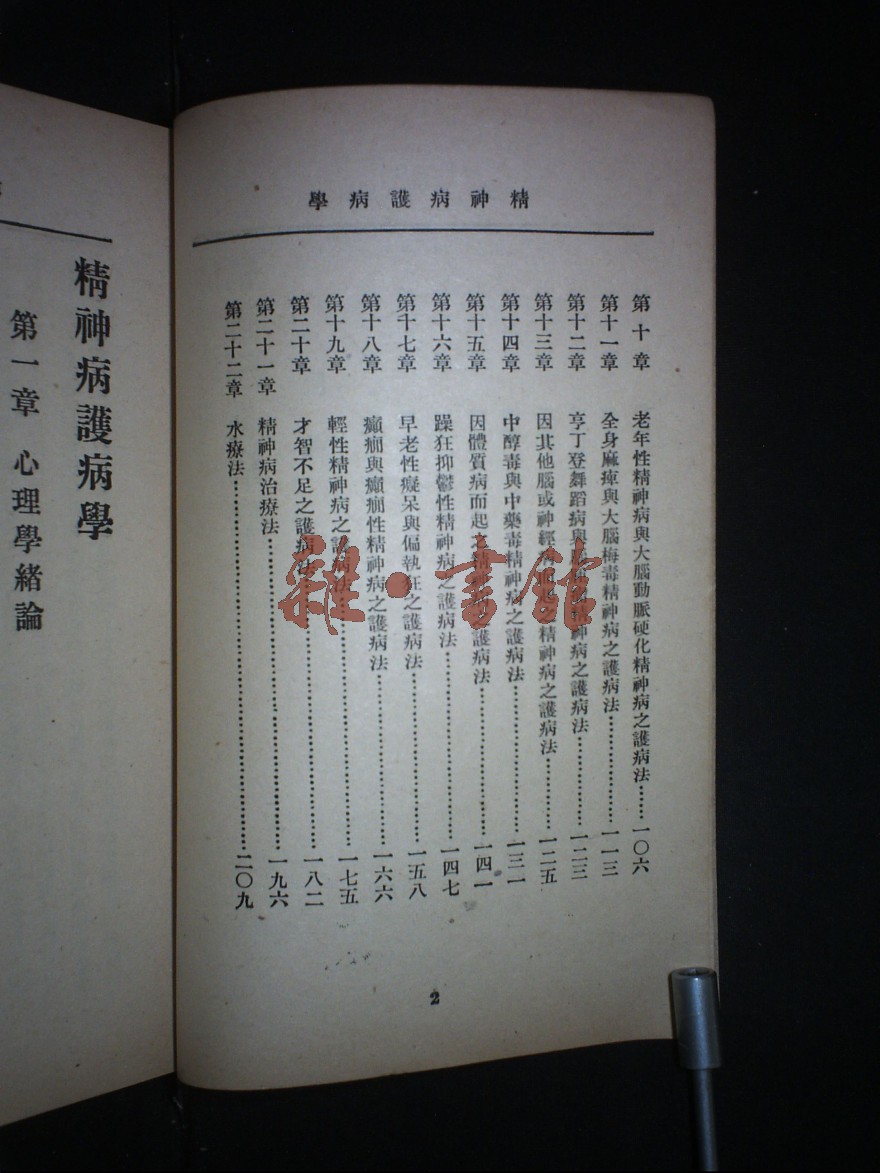 精神病護病學
第十章 老年性精神病與大腦動脈硬化精神病之護病法……一〇六
第十一章 全身麻痺與大腦梅毒精神病之護病法……一一三
第十二章 亨丁登舞蹈病與精神病之護病法……一二三
第十三章 因其他腦或神經病而起之精神病之護病法……一二五
第十四章 中醇毒與中藥毒精神病之護病法……一三一
第十五章 因體質病而起之精神病之護病法……一四一
第十六章 躁狂抑鬱性精神病之護病法……一四七
第十七章 早老性癡呆與偏執狂之護病法……一五八
第十八章 癲癇與癲癇性精神病之護病法……一六六
第十九章 輕性精神病之護病法……一七五
第二十章 才智不足之護病法……一八二
第二十一章 精神病治療法……一九六
第二十二章 水療法……二〇九
2
精神病護病學
第一章 心理學緒論
雜·書館